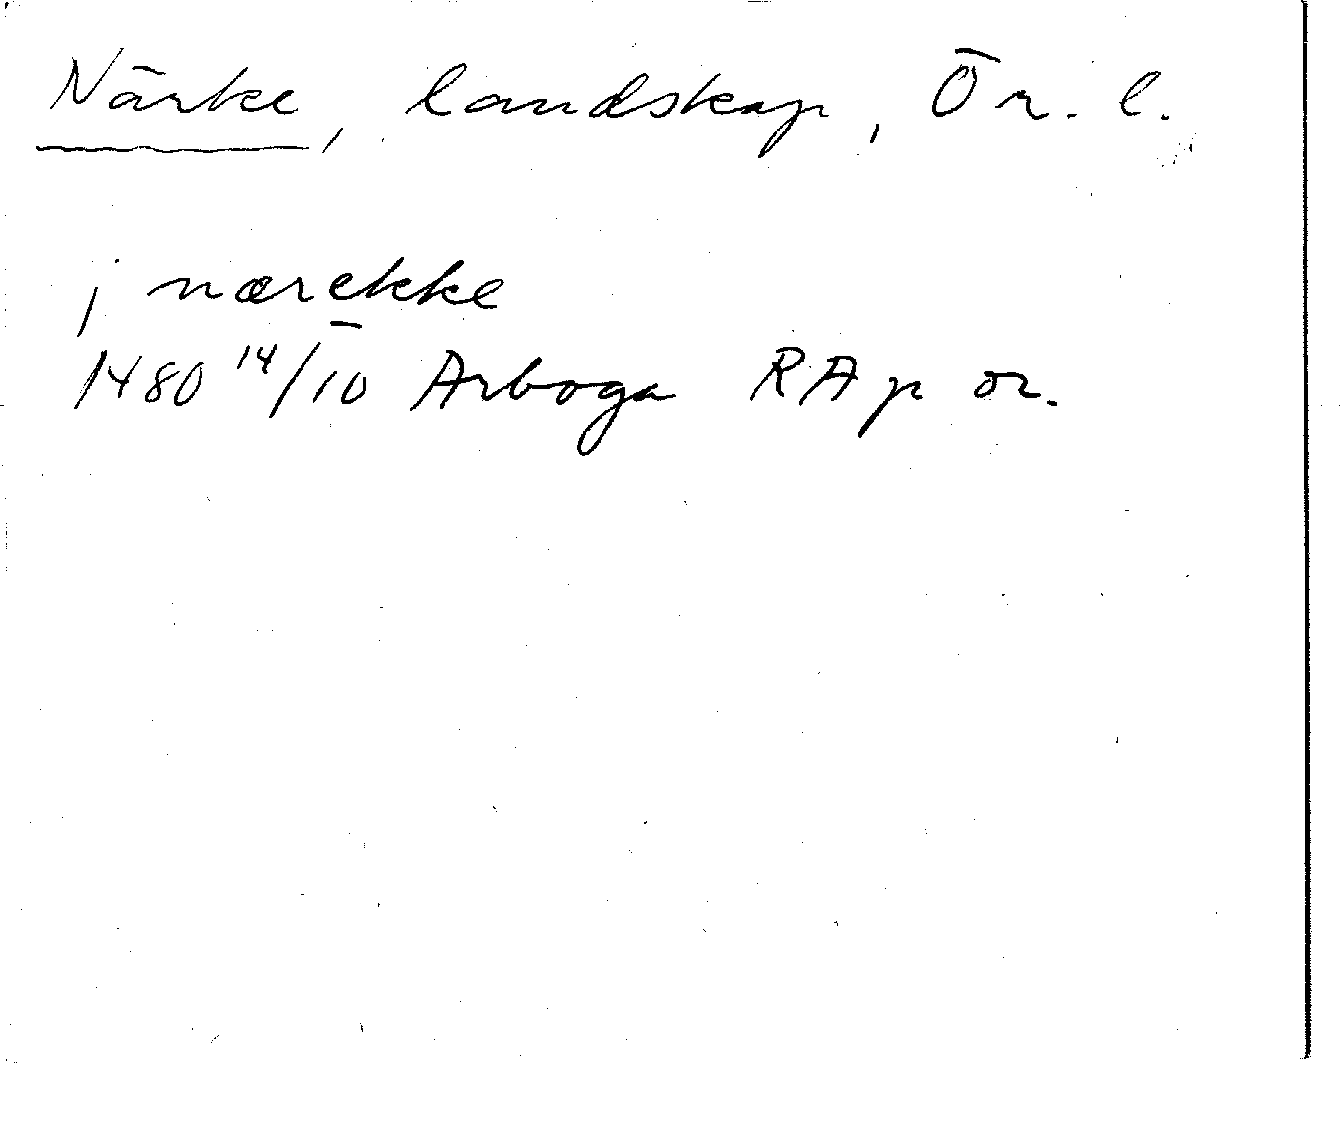 Närke, landskap, Ör. l.
j nærekke
1480 14/10 Arboga RA p or.